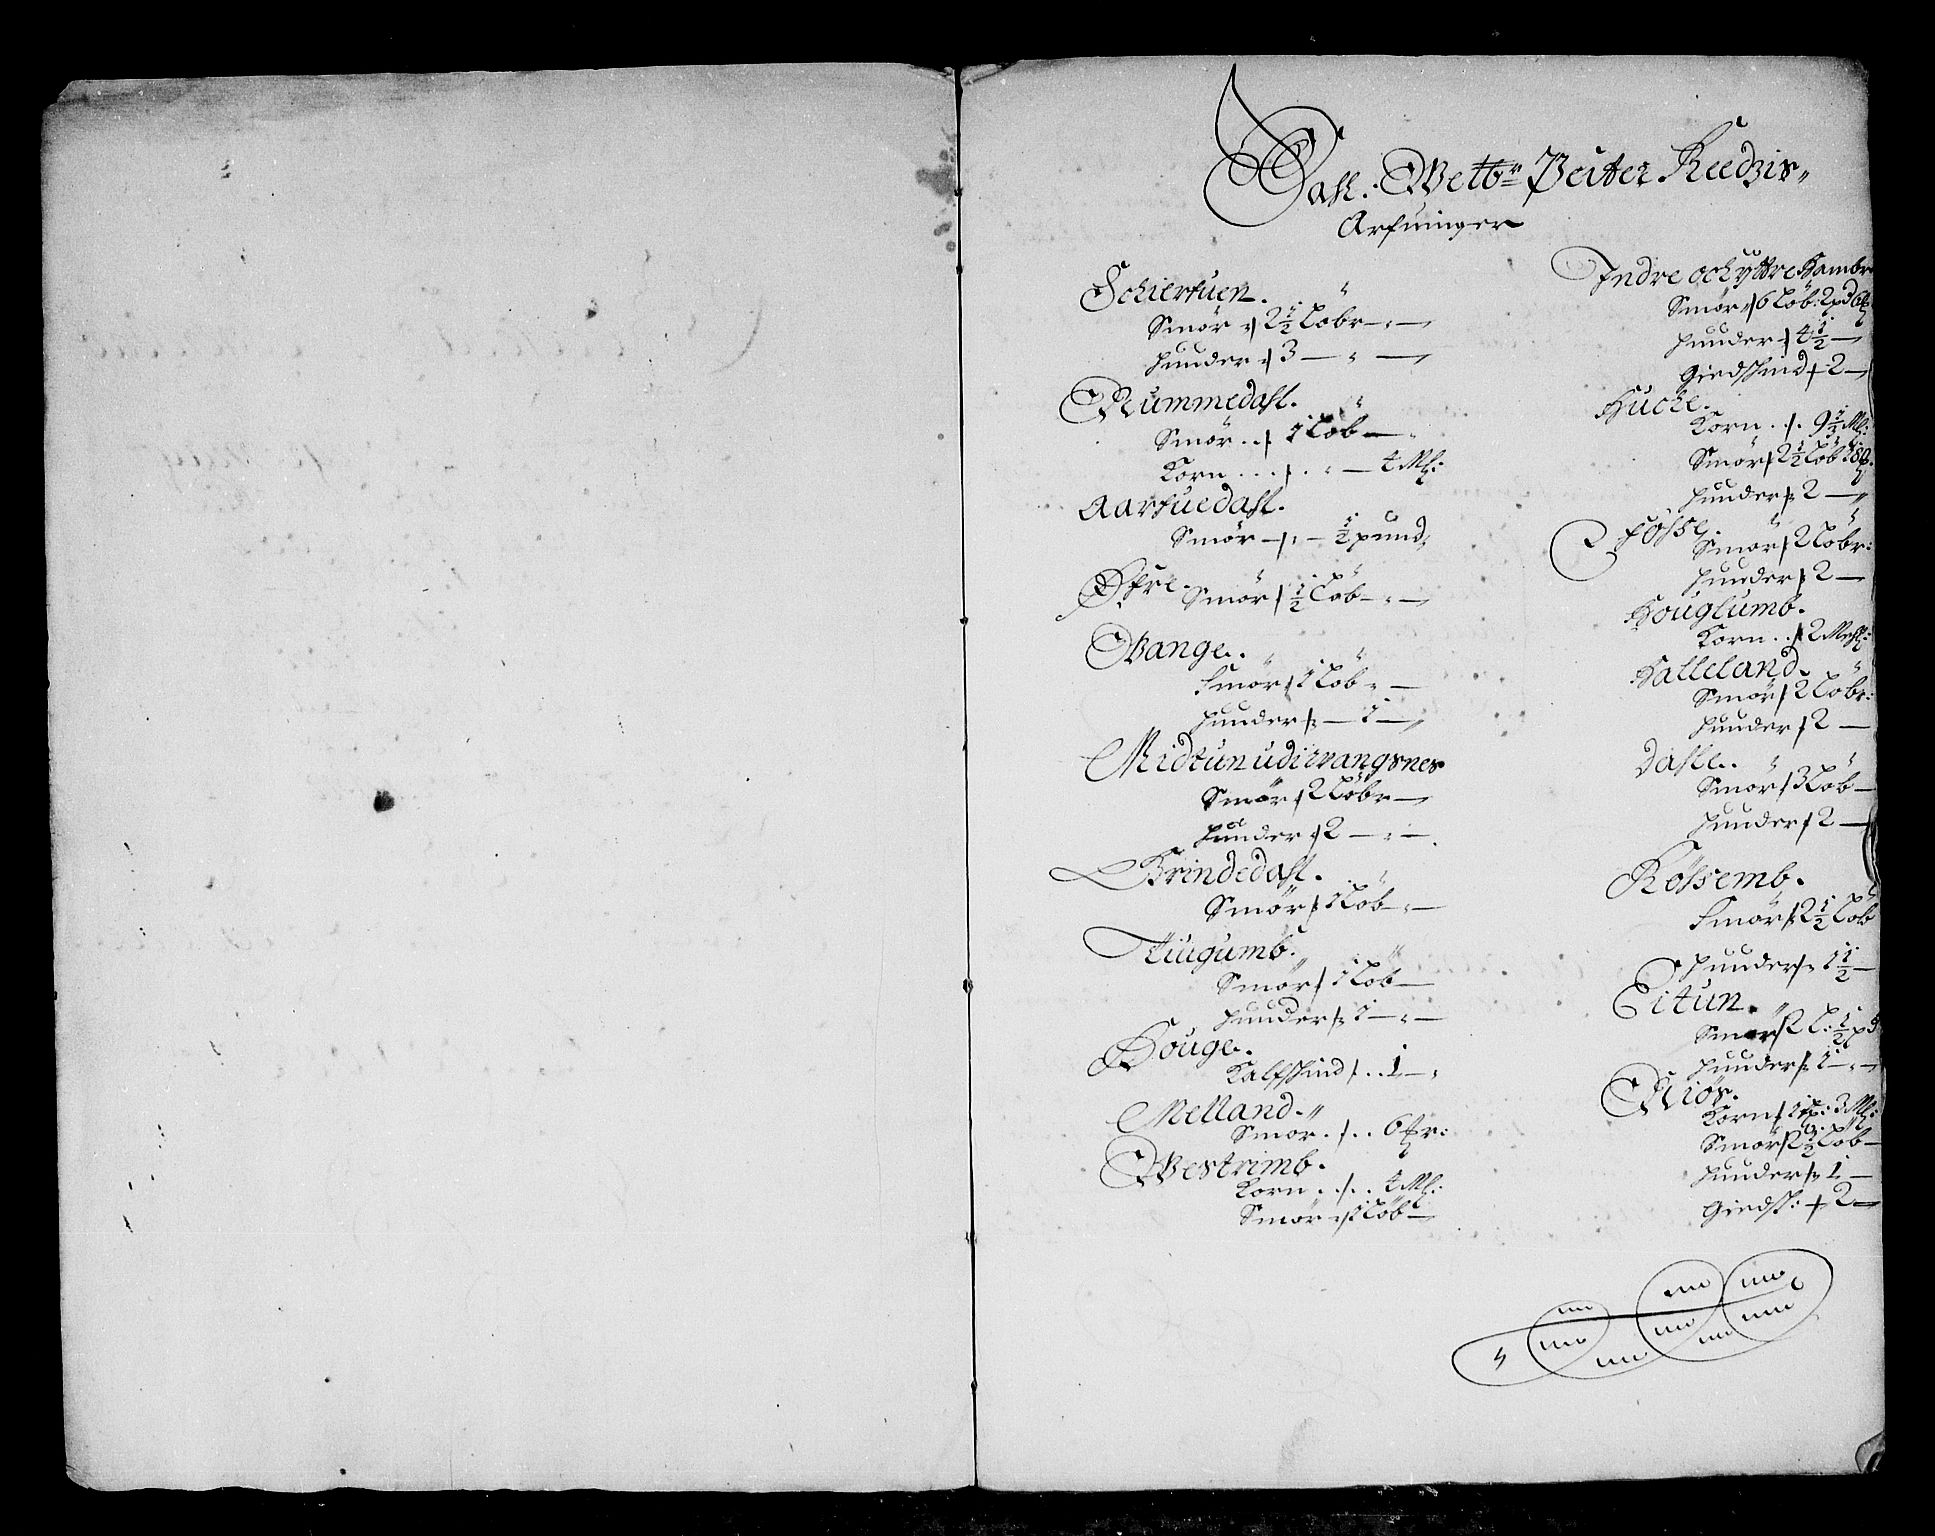 Sahl: Welbr Peiter Reedzis
Arfuinger
Schierfuen.
Smör 2 1/2 Löbr
huuder 3
Nummedahl.
Smör 1 Löb
Korn 4 Ml:
Aarfuedahl.
Smör 1/2 pund
Öfre.
Smör 1/2 Löb
Wange.
Smör 1 Löb
huuder 1
Midtun udi wangsnes
Smör 2 Löbr
huuder 2
Grindedahl.
Smör 1 Löb
Tiugumb.
Smör 1 Löb
huuder 1
Houge.
Kalfskind 1
Melland.
Smör 6 
Westrimb.
Korn 4 Ml:
Smör 1 Löb
Indre och yttre Hambre
Smör 6 Löb: 2 pd 6
huuder 4 1/2
Giedskind 2
Hucke.
Korn 9 1/2 Ml:
Smör 2 1/2 Löb 18
huuder 2
Fosse.
Smör 2 Löbr:
huuder 2
Houglumb.
Korn 2 Mehl:
Halleland.
Smör 2 Löbr:
huuder 2
Dahle.
Smör 3 Löb
huuder 2
Rössemb.
Smör 2 1/2 Löb
huuder 1 1/2
Eitun.
Smör 2 L: 1/2 pd
huuder 1
Niös.
Korn 1 p: 3 Ml:
Smör Löb
huuder 1
Giedsk: 2